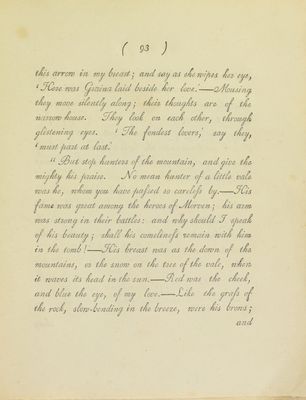 ( 93 )
this arrow in my breast; and say as she wipes her eye,
'Here was Gaina laid beside her love.'—Mousing
they move silently along; their thoughts are of the
narrow house. They look on each other, through
glistening eyes. 'The fondest lovers,' say they,
'must part at last.'
"But stop hunters of the mountain, and give the
mighty his praise. No mean hunter of a little vale
was he, whom you have passed so careless by.—His
fame was great among the heroes of Morven; his arm
was strong in their battles: and why should I speak
of his beauty; shall his comeliness remain with him
in the tomb!—His breast was as the down of the
mountains, or the snow on the tree of the vale, when
it waves its head in the sun.—Red was the cheek,
and blue the eye, of my love.—Like the grass of
the rock, slow-bending in the breeze, were his brows;
and